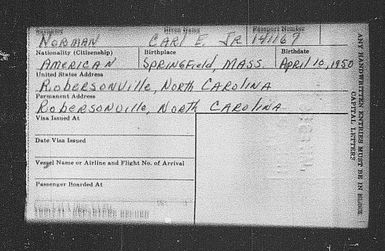 Surname Given Names Passport Number
NORMAN CARL E. JR 141167
Nationality (Citizenship) Birthplace Birthdate
AMERICAN SPRINGFIELD, MASS APRIL 10, 1950
United States Address
ROBERSONVILLE, NORTH CAROLINA
Permanent Address
ROBERSONVILLE, NORTH CAROLINA
Visa Issued At
Date Visa Issued
Vessel Name or Airline and Flight No. of Arrival
Passenger Boarded At
ANY HANDWRITTEN ENTRIES MUST BE IN BLOCK
CAPITAL LETTERS